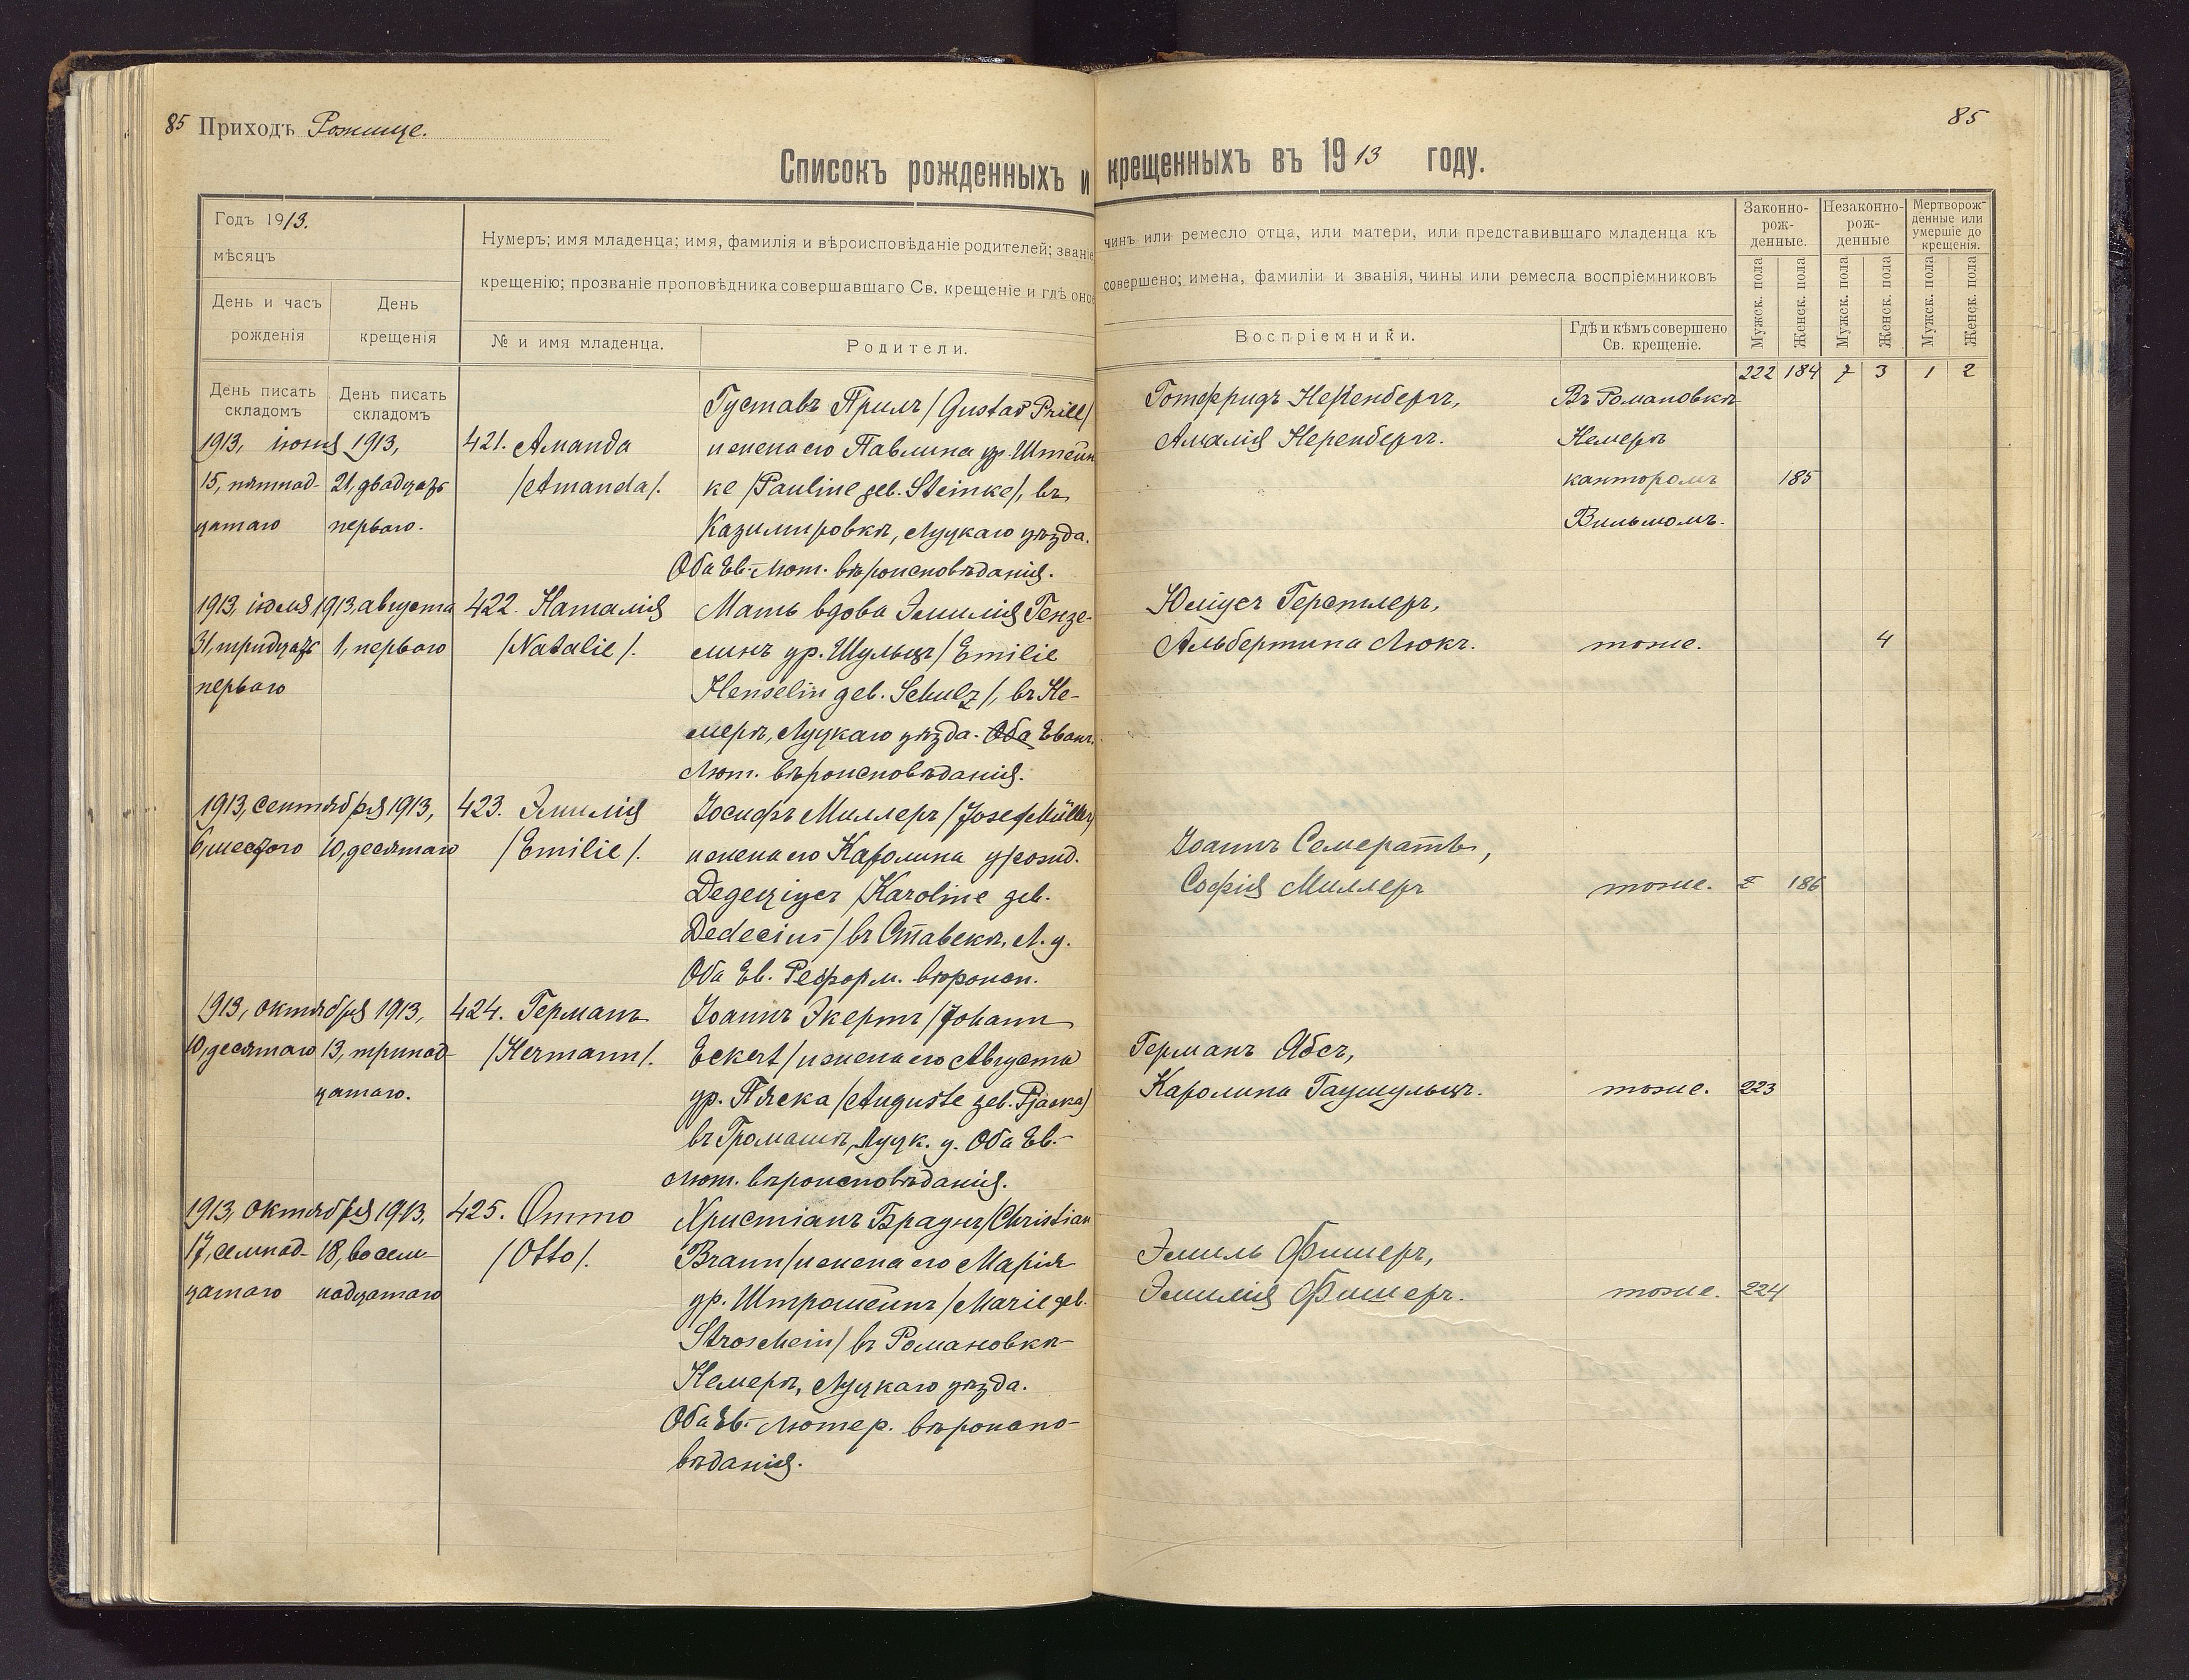 85 Приходъ Рожище.
85
Списокъ рожденныхъ и крещенныхъ въ 1913 году.
Годъ 1913.
мѣсяцъ
День и часъ
рожденія
День
крещенія
Нумеръ; имя младенца; имя, фамилія и вѣроисповѣданіе родителей; званіе
крещенію; прозваніе проповѣдника совершавшаго Св. крещеніе и гдѣ оно
№ и имя младенца.
Родители.
чинъ или ремесло отца, или матери, или представившаго младенца къ
совершено; имена, фамиліи и званія, чины или ремесла воспріемниковъ
Воспріемники.
Гдѣ и кѣмъ совершено
Св. крещеніе.
Законно-
рож-
денные.
Незаконно-
рож-
денные
Мертворож-
денные или
умершіе до
крещенія.
Мужск. пола
Женск. пола
Мужск. пола
Женск. пола
Мужск. пола
Женск. пола
День писать
складомъ
День писать
складомъ
222 184 7 3 1 2
1913, іюня
15, пятнад-
цатаго
1913,
21, двадцать
перваго.
421. Аманда
/Amanda/.
Густавъ Прилъ /Gustav Prill/
и жена его Павлина ур. Штейн
ке /Pauline geb. Steinke/, въ
Казимировкѣ, Луцкаго уѣзда.
Оба Ев.-Лют. вѣроисповѣданія.
Готфридъ Неренбергъ,
Амалія Неренбергъ.
Въ Романовкѣ
Немеръ
канторомъ
Вильмомъ.
185
1913, іюля
31, тридцать
перваго
1913, августа
1, перваго
422. Наталія
/Natalie/.
Мать вдова Эмилія Гензе-
линъ ур. Шульцъ /Emilie
Henselin geb. Schulz/, въ Не-
мерѣ, Луцкаго уѣзда. Оба Еванг.
Лют. вѣроисповѣданія.
Юліусъ Герстлеръ,
Альбертина Люкъ.
тоже.
4
1913, сентября
6, шестого
1913,
10, десятаго
423. Эмилія
/Emilie/.
Іосифъ Миллеръ /Josef Müller/
и жена его Каролина урожд.
Дедеціусъ /Karoline geb.
Dedecius/ въ Ставекѣ, Л. у.
Оба Ев. Реформ. вѣроисп.
Іоаннъ Семератъ,
Софія Миллеръ
тоже.
186
1913, октября
10, десятаго
1913,
13, тринад-
цатаго.
424. Германъ
/Hermann/.
Іоаннъ Экертъ /Johann
Eckert/ и жена его Августа
ур. Пяска /Auguste geb. Pjaska/
въ Громашѣ, Луцк. у. Оба Ев.-
Лют. вѣроисповѣданія.
Германъ Ябсъ,
Каролина Гаушульцъ.
тоже.
223
1913, октября
17, семнад-
цатаго
1913,
18, восем-
надцатаго
425. Отто
/Otto/.
Христіанъ Браунъ /Christian
Braun/ и жена его Марія
ур. Штрошейнъ /Marie geb.
Stroschein/ въ Романовкѣ-
Немерѣ, Луцкаго уѣзда.
Оба Ев.-Лютер. вѣроиспо-
вѣданія.
Эмиль Фишеръ,
Эмилія Фишеръ.
тоже.
224